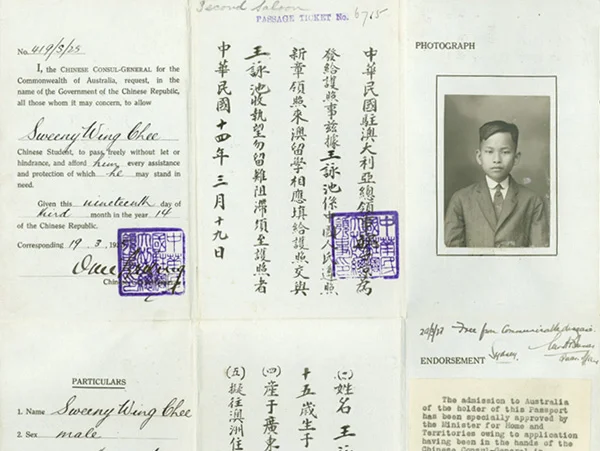 Second Saloon
PASSAGE TICKET No. 6715
No. 419/S/25
I, the CHINESE CONSUL-GENERAL for the
Commonwealth of Australia, request, in the
name of the Government of the Chinese Republic,
all those whom it may concern, to allow
Sweeny Wing Chee
Chinese Student, to pass freely without let or
hindrance, and afford him every assistance
and protection of which he may stand in
need.
Given this nineteenth day of
third month in the year 14
of the Chinese Republic.
Corresponding 19. 3. 19
中華民國駐澳大利亞總領事 為
發給護照事茲據王詠池係中國人民遵照
新章領照來澳留學相應填給護照交與
王詠池收執望勿留難阻滯須至護照者
中華民國十四年三月十九日
PHOTOGRAPH
Free from Communicable disease.
Sydney
ENDORSEMENT
The admission to Australia
of the holder of this Passport
has been specially approved by
the Minister for Home and
Territories owing to application
having been in the hands of the
Chinese Consul-General in
PARTICULARS
1. Name Sweeny Wing Chee
2. Sex male
姓名 王
十五歲生于
(四) 產于廣東
(五) 擬往澳洲住